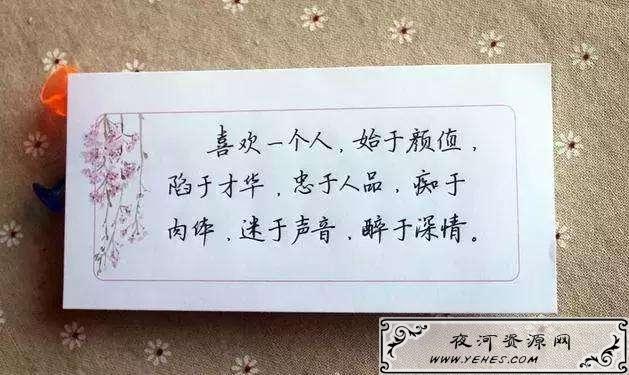 喜欢一个人，始于颜值，
陷于才华，忠于人品，痴于
肉体，迷于声音，醉于深情。
夜河资源网
WWW.YEHES.COM